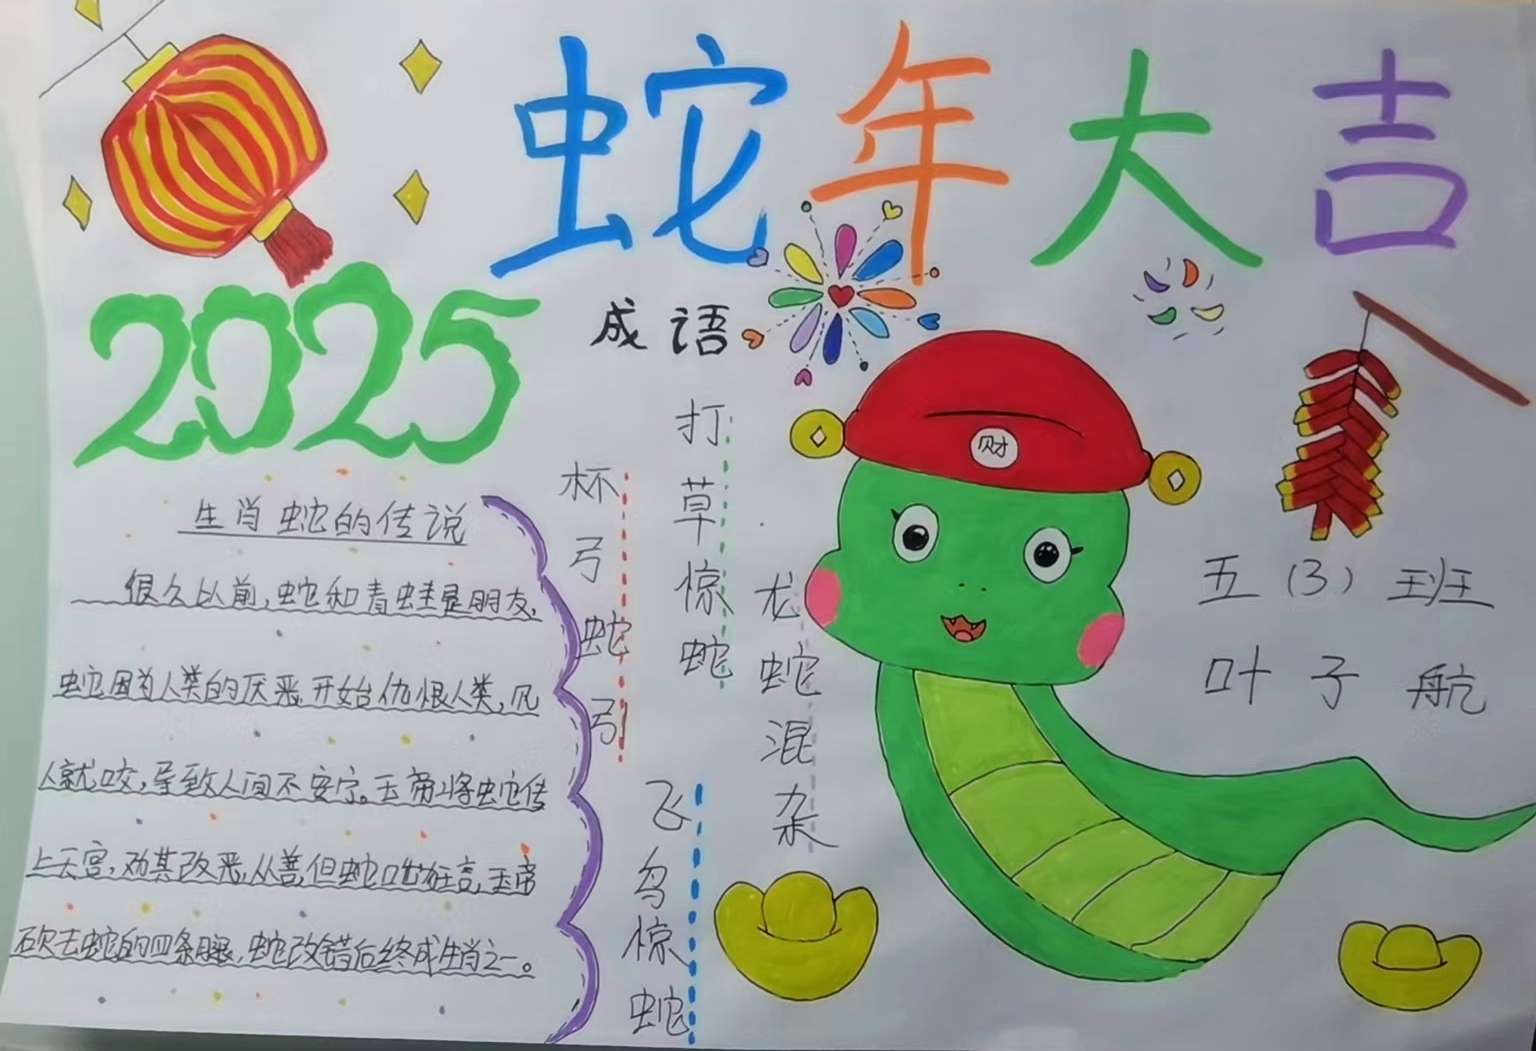 蛇年大吉
2025
成语
财
生肖蛇的传说
很久以前,蛇和青蛙是朋友,
蛇因为人类的厌恶开始仇恨人类,见
人就咬,导致人间不安宁。玉帝将蛇传
上天宫,劝其改恶从善,但蛇口出狂言,玉帝
砍去蛇的四条腿,蛇改错后终成生肖之一。
杯弓蛇弓
打草惊蛇
龙蛇混杂
飞鸟惊蛇
五(3)班
叶子航